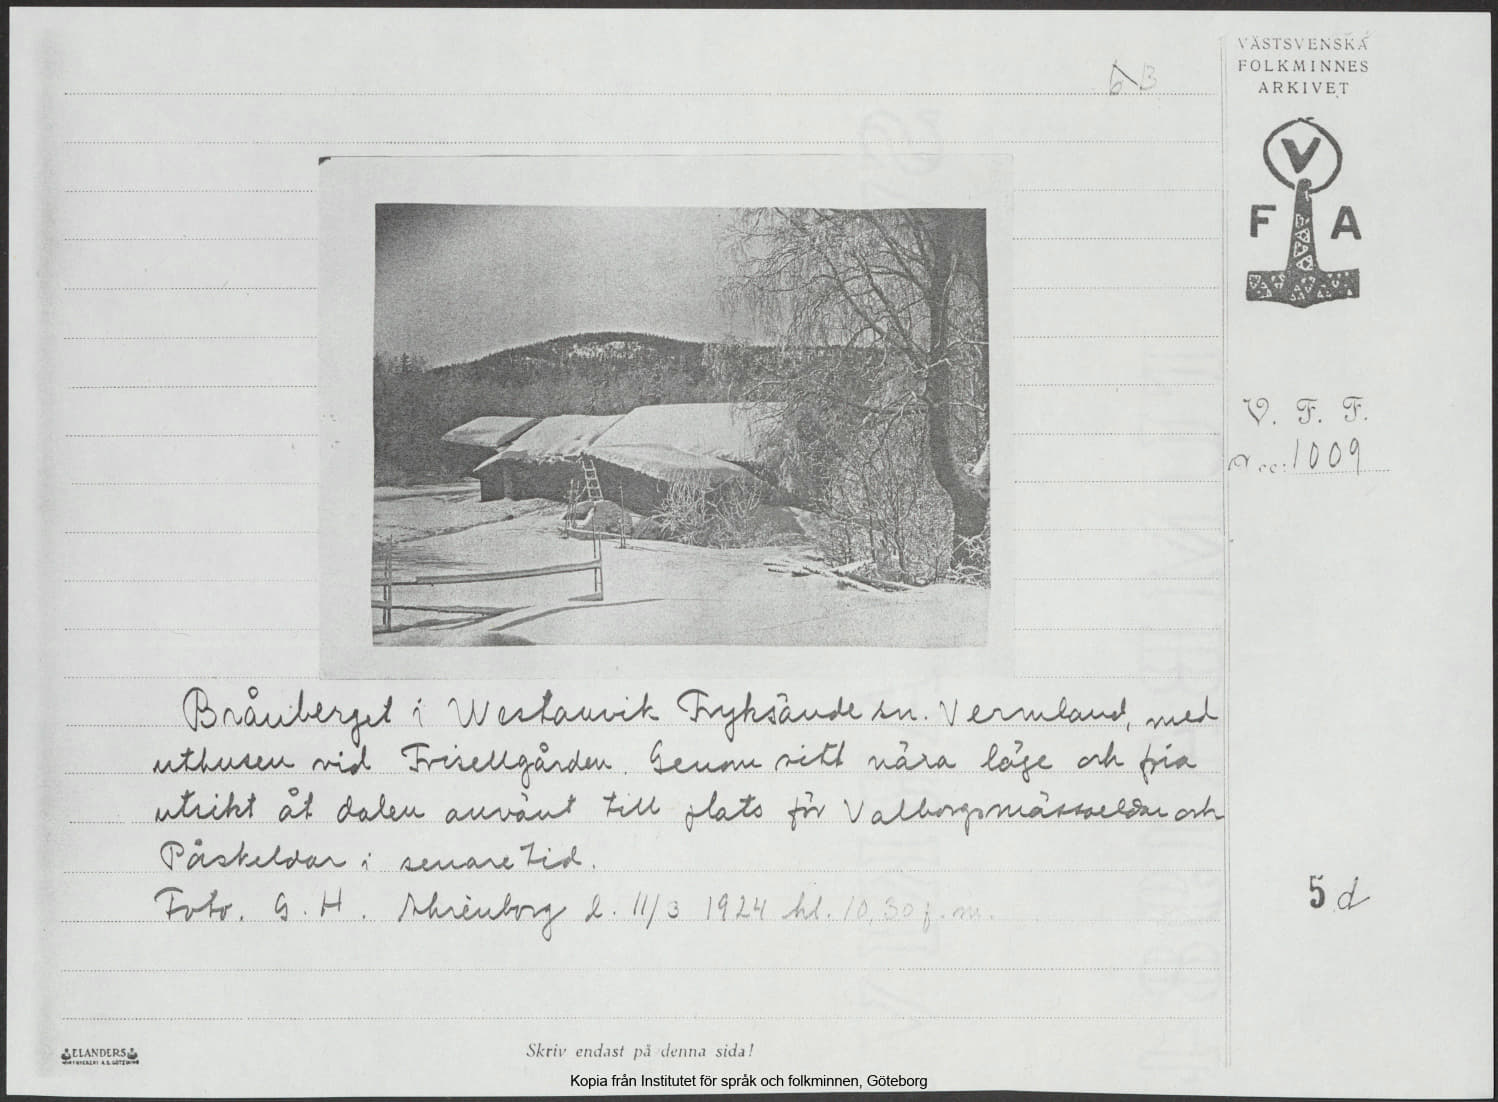 b B
VÄSTSVENSKA
FOLKMINNES
ARKIVET
V
F A
V. F. F.
Acc: 1009
Brånberget i Westanvik Fryksände sn. Vermland, med
uthusen vid Frisellgården. Genom sitt nära läge och fria
utsikt åt dalen använt till plats för Valborgsmässoeldar och
Påskeldar i senare tid.
Foto. G. H. d. 11/3 1924 kl. 10,30 f.m.
5 d
ELANDERS
Skriv endast på denna sida!
Kopia från Institutet för språk och folkminnen, Göteborg